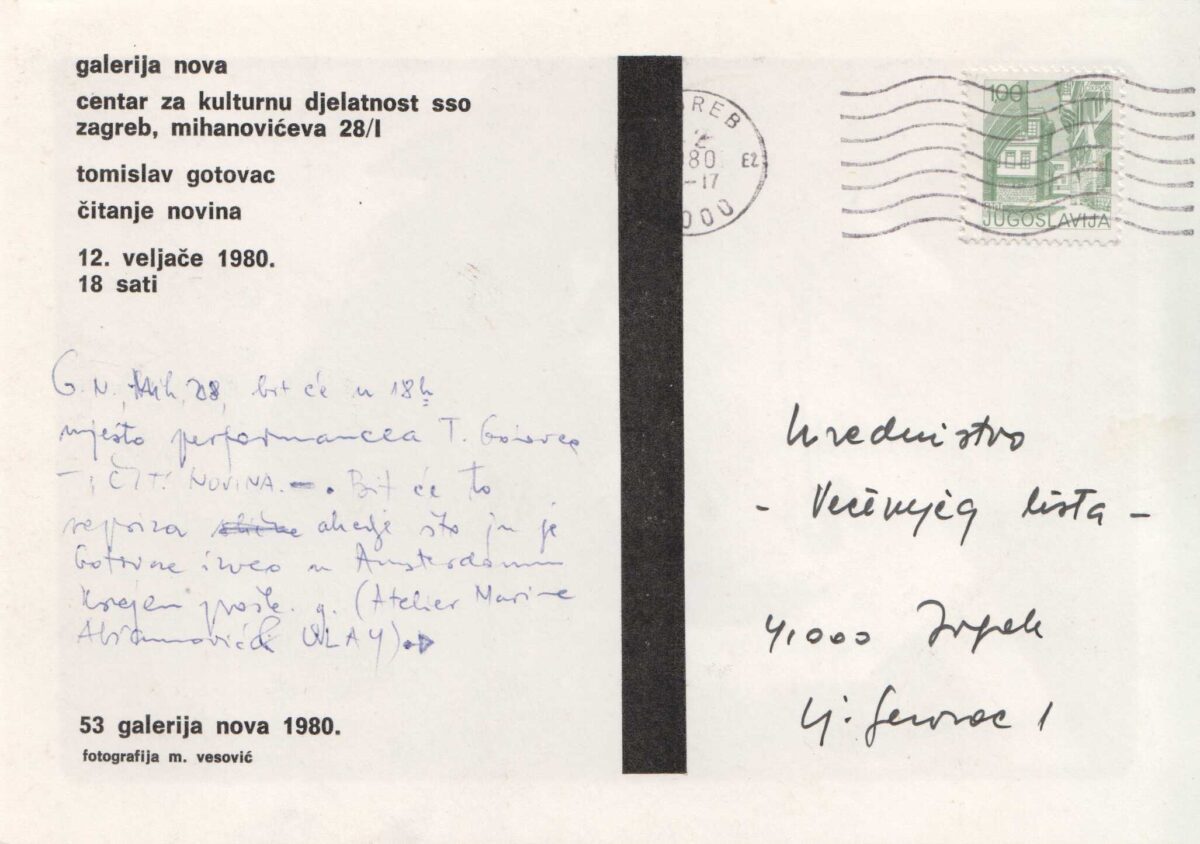 galerija nova
centar za kulturnu djelatnost sso
zagreb, mihanovićeva 28/I
tomislav gotovac
čitanje novina
12. veljače 1980.
18 sati
G. N. Mih, 28, bit će u 18h
mjesto performancea T. Gotovca
ČIT. NOVINA. Bit će to
akcije što ju je
Gotovac izveo u Amsterdamu
krajem prošle g. (Atelier Marine
Abramović & ULAY)
53 galerija nova 1980.
fotografija m. vesović
REB
2
80 E2
-17
000
100
JUGOSLAVIJA
Uredništvo
- Večernjeg lista -
41000 Zagreb
Lj. Gerovac 1